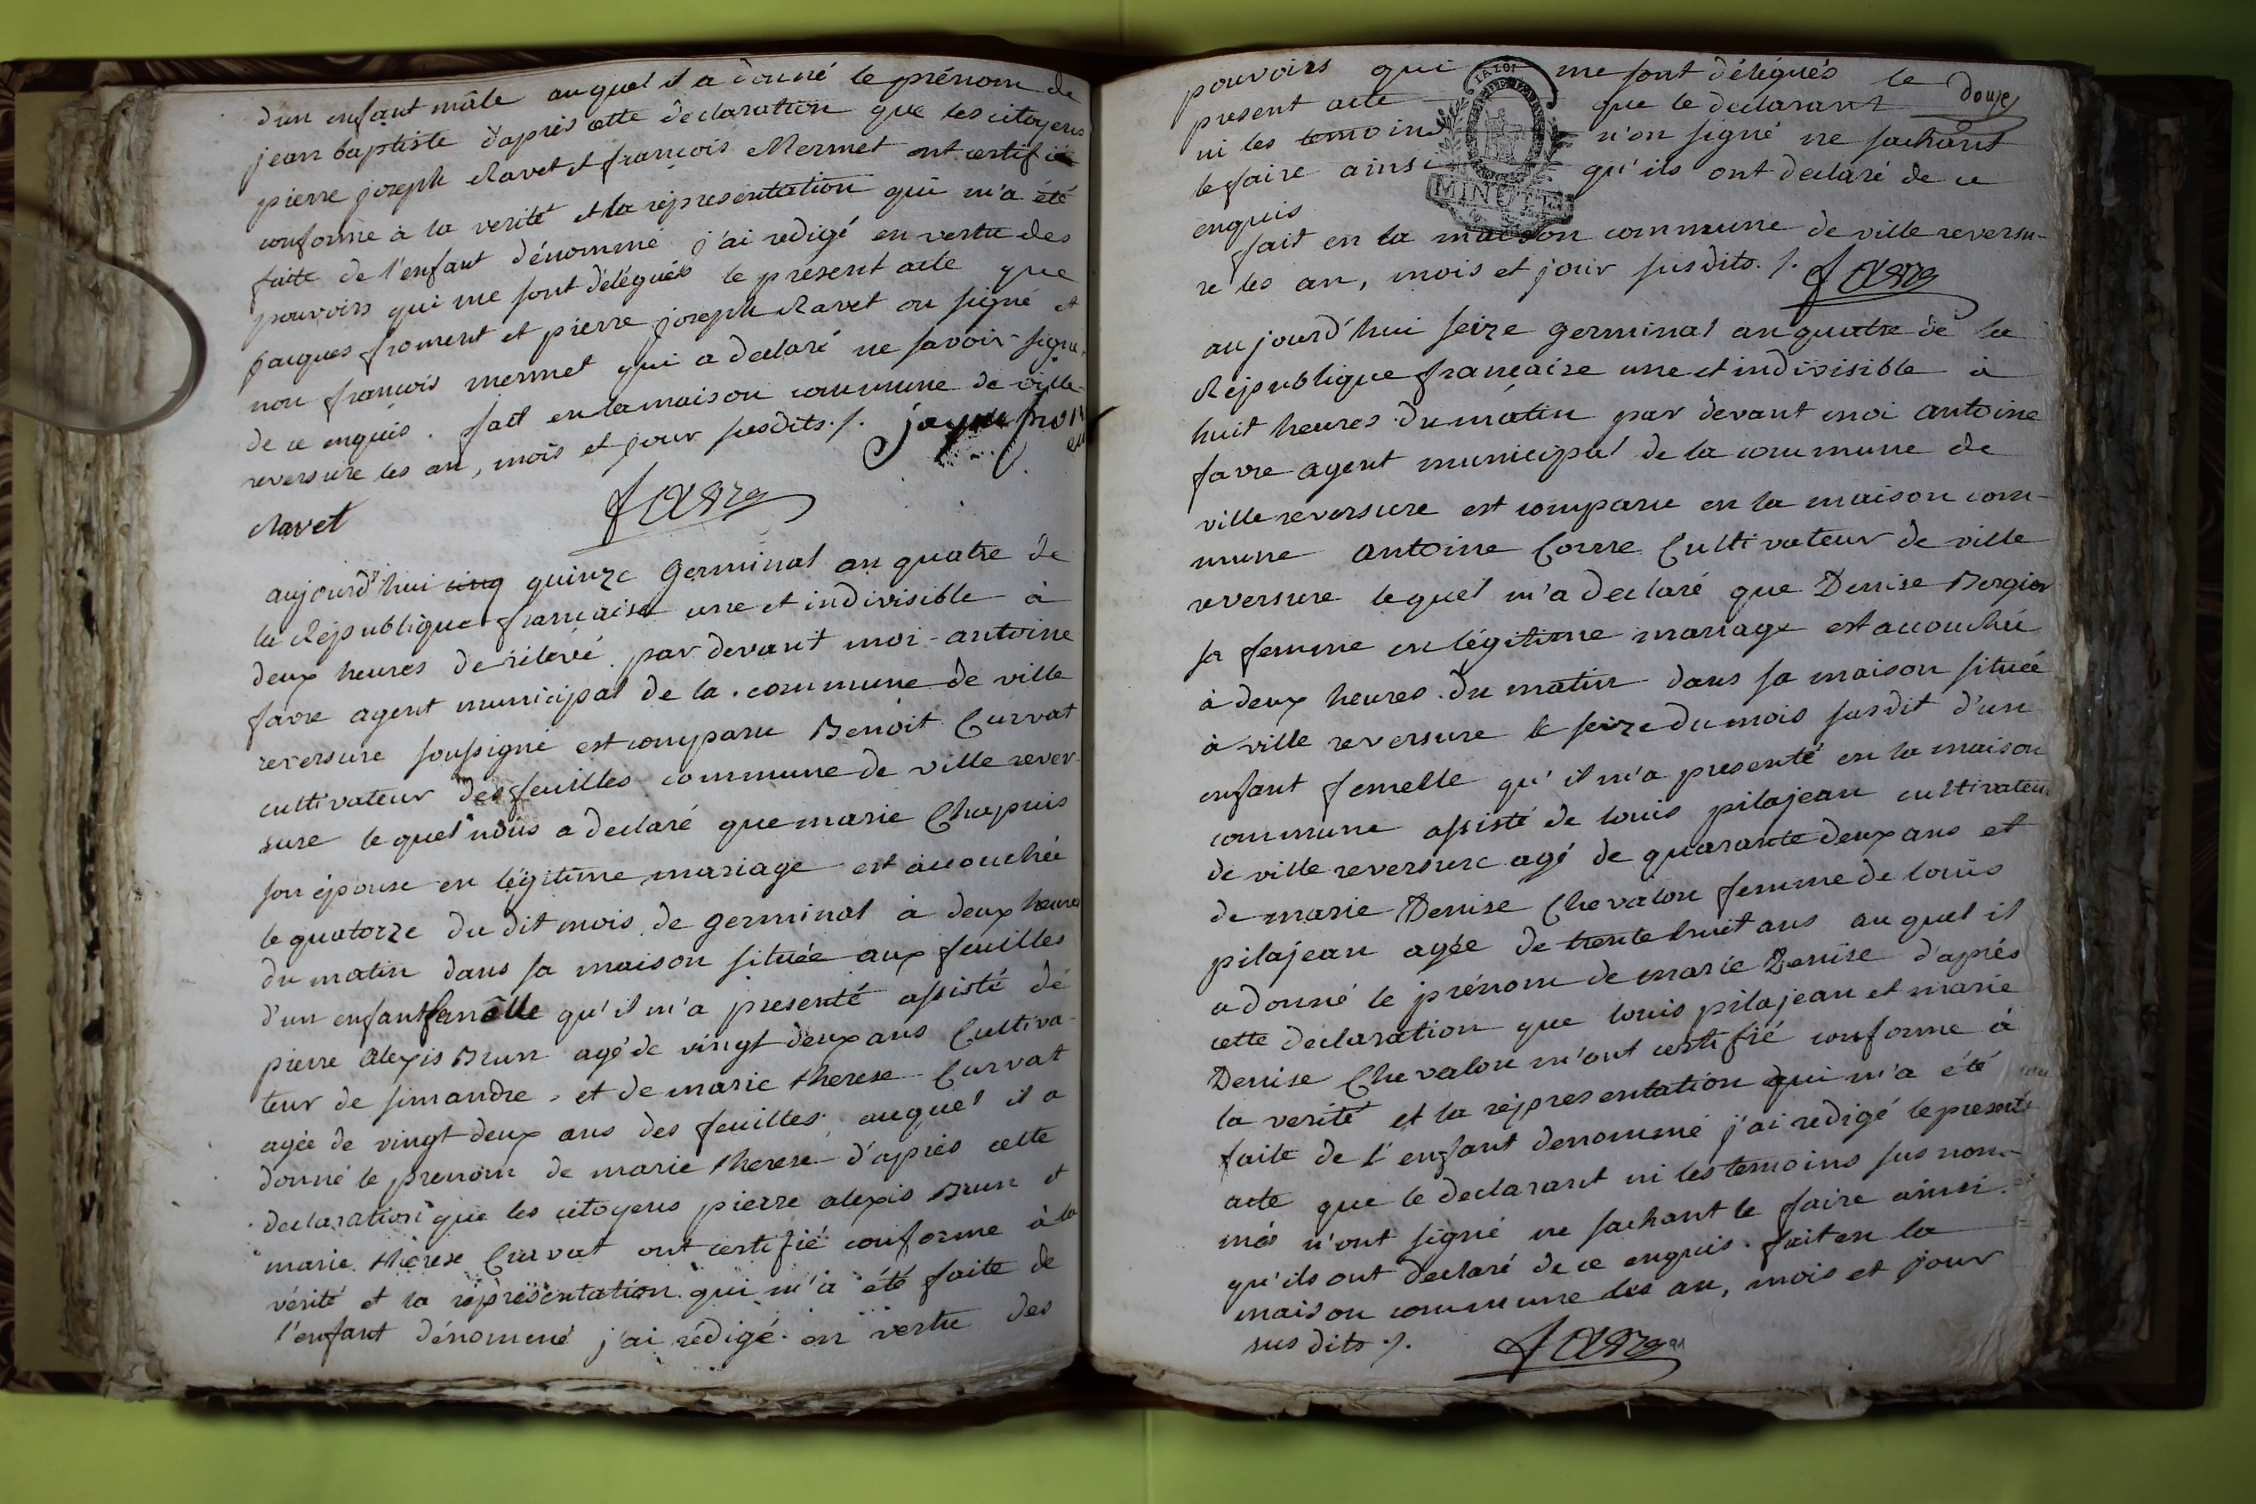 d'un enfant mâle auquel il a donné le prénom de
jean baptiste d'après cette declaration que les citoyens
pierre joseph Ravet et françois Mermet ont certifié
conforme à la verité et la représentation qui m'a été
faite de l'enfant dénommé j'ai redigé en vertu des
pouvoirs qui me sont délégués le present acte que
jacques froment et pierre joseph Ravet on signé et
non françois mermet qui a declaré ne savoir signer
de ce enquis. fait en la maison commune de ville
reversure les an, mois et jour susdits ./.
Ravet favre
aujourd'hui cinq quinze Germinal an quatre de
la République française une et indivisible à
deux heures de rélevé par devant moi antoine
favre agent municipal de la commune de ville
reversure soussigné est comparu Benoit Curvat
cultivateur des feuilles commune de ville rever-
sure lequel nous a declaré que marie Chapuis
son épouse en légitime mariage est accouchée
le quatorze du dit mois de germinal à deux heures
du matin dans sa maison située aux feuilles
d'un enfant femêlle qu'il m'a presenté assisté de
pierre alexis Brun agé de vingt deux ans Cultiva-
teur de simandre, et de marie therese Curvat
agée de vingt deux ans des feuilles auquel il a
donné le prenom de marie therese d'après cette
declaration que les citoyens pierre alexis Brun et
marie thérese Curvat ont certifié conforme à la
vérité et la représentation qui m'a été faite de
l'enfant dénommé j'ai rédigé en vertu des
pouvoirs qui me sont délégués le
douze
present acte que le declarant
ni les temoins n'on signé ne sachant
le faire ainsi qu'ils ont declaré de ce
enquis
LA LOI
MINUTE
fait en la maison commune de ville reversu-
re les an, mois et jour susdits ./. favre
aujourd'hui seize germinal an quatre de la
République française une et indivisible à
huit heures du matin par devant moi antoine
favre agent municipal de la commune de
ville reversure est comparu en la maison com-
mune antoine Corre Cultivateur de ville
reversure lequel m'a declaré que Denise Bergier
sa femme en légitime mariage est accouchée
à deux heures du matin dans sa maison située
à ville reversure le seize du mois susdit d'un
enfant femelle qu'il m'a presenté en la maison
commune assisté de louis pilajean cultivateur
de ville reversure agé de quarante deux ans et
de marie Denise Chevalon femme de louis
pilajean agée de trente huit ans auquel il
a donné le prénom de marie Denise d'après
cette declaration que louis pilajean et marie
Denise Chevalon m'ont certifié conforme à
la verité et la représentation qui m'a été
faite de l'enfant denommé j'ai redigé le present
acte que le declarant ni les temoins sus nom-
més n'ont signé ne sachant le faire ainsi
qu'ils ont declaré de ce enquis. fait en la
maison commune les an, mois et jour
sus dits ./. favre